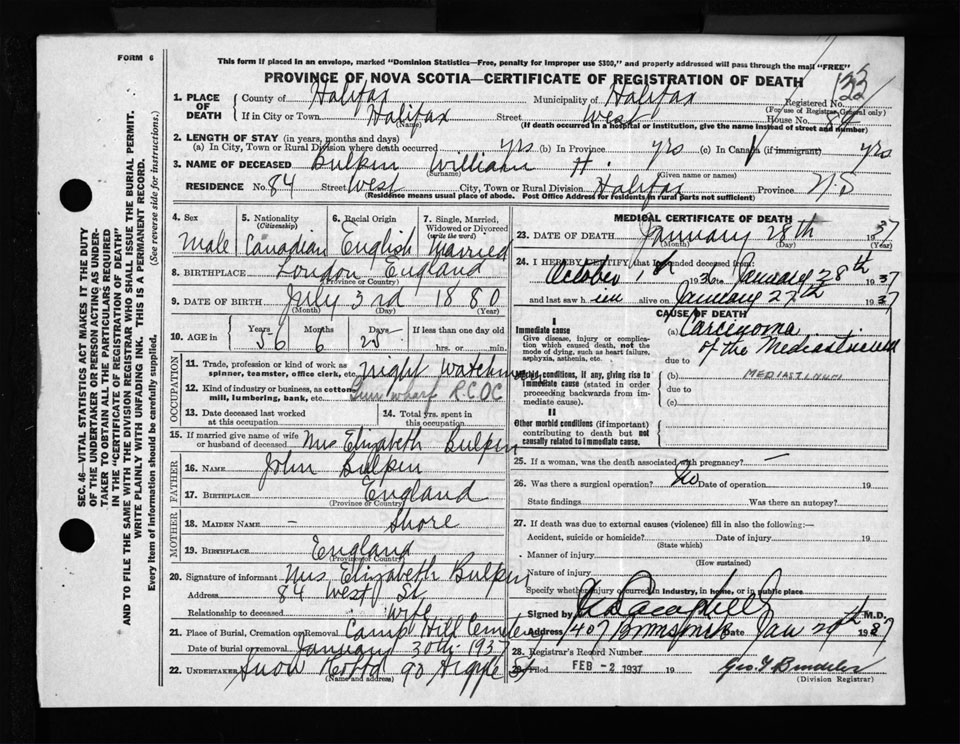 FORM 6
This form if placed in an envelope, marked "Dominion Statistics—Free, penalty for improper use $300," and properly addressed will pass through the mail "FREE"
PROVINCE OF NOVA SCOTIA—CERTIFICATE OF REGISTRATION OF DEATH
132
1. PLACE OF DEATH
County of Halifax Municipality of Halifax Registered No.
(For use of Registrar General only)
If in City or Town Halifax Street West House No. 84
(Name) (If death occurred in a hospital or institution, give the name instead of street and number)
2. LENGTH OF STAY (in years, months and days)
(a) In City, Town or Rural Division where death occurred yrs (b) In Province yrs (c) In Canada (if immigrant) yrs
3. NAME OF DECEASED Bulpin William H.
(Surname) (Given name or names)
RESIDENCE No. 84 Street West City, Town or Rural Division Halifax Province N.S
(Residence means usual place of abode. Post Office Address for residents in rural parts not sufficient)
4. Sex
Male
5. Nationality
(Citizenship)
Canadian
6. Racial Origin
English
7. Single, Married, Widowed or Divorced
(write the word)
Married
8. BIRTHPLACE London England
(Province or Country)
9. DATE OF BIRTH July 3rd 1880
(Month) (Day) (Year)
10. AGE in
Years 56 Months 6 Days 25 If less than one day old
hrs. or min.
OCCUPATION
11. Trade, profession or kind of work as spinner, teamster, office clerk, etc. night watchman
12. Kind of industry or business, as cotton mill, lumbering, bank, etc. Gun wharf R.C.O.C
13. Date deceased last worked at this occupation
14. Total yrs. spent in this occupation
15. If married give name of wife or husband of deceased Mrs Elizabeth Bulpin
FATHER
16. NAME John Bulpin
17. BIRTHPLACE England
(Province or Country)
MOTHER
18. MAIDEN NAME — Shore
19. BIRTHPLACE England
(Province or Country)
20. Signature of informant Mrs Elizabeth Bulpin
Address 84 West St.
Relationship to deceased wife
21. Place of Burial, Cremation or Removal Camp Hill Cemetery
Date of burial or removal January 30th 1937
22. UNDERTAKER Snow 90 Argyle St
(Name and address)
MEDICAL CERTIFICATE OF DEATH
23. DATE OF DEATH January 28th 1937
(Month) (Day) (Year)
24. I HEREBY CERTIFY that I attended deceased from:
October 1st 1936 to January 28th 1937
and last saw him alive on January 27th 1937
CAUSE OF DEATH
I
Immediate cause
Give disease, injury or complication which caused death, not the mode of dying, such as heart failure, asphyxia, asthenia, etc.
(a) Carcinoma
of the Mediastinum
due to
Morbid conditions, if any, giving rise to immediate cause (stated in order proceeding backwards from immediate cause).
(b) MEDIASTINUM
due to
(c)
II
Other morbid conditions (if important) contributing to death but not causally related to immediate cause.
25. If a woman, was the death associated with pregnancy? —
26. Was there a surgical operation? No Date of operation 19
State findings Was there an autopsy?
27. If death was due to external causes (violence) fill in also the following:—
Accident, suicide or homicide? Date of injury 19
(State which)
Manner of injury
(How sustained)
Nature of injury
Specify whether injury occurred in Industry, in home, or in public place
Signed by M.D.
Address 407 Brunswick Date Jan 29th 1937
28. Registrar's Record Number
29. Filed FEB -2 1937 19
(Division Registrar)
SEC. 46—VITAL STATISTICS ACT MAKES IT THE DUTY
OF THE UNDERTAKER OR PERSON ACTING AS UNDER-
TAKER TO OBTAIN ALL THE PARTICULARS REQUIRED
IN THE "CERTIFICATE OF REGISTRATION OF DEATH"
AND TO FILE THE SAME WITH THE DIVISION REGISTRAR WHO SHALL ISSUE THE BURIAL PERMIT.
WRITE PLAINLY WITH UNFADING INK. THIS IS A PERMANENT RECORD.
Every item of information should be carefully supplied. (See reverse side for instructions.)